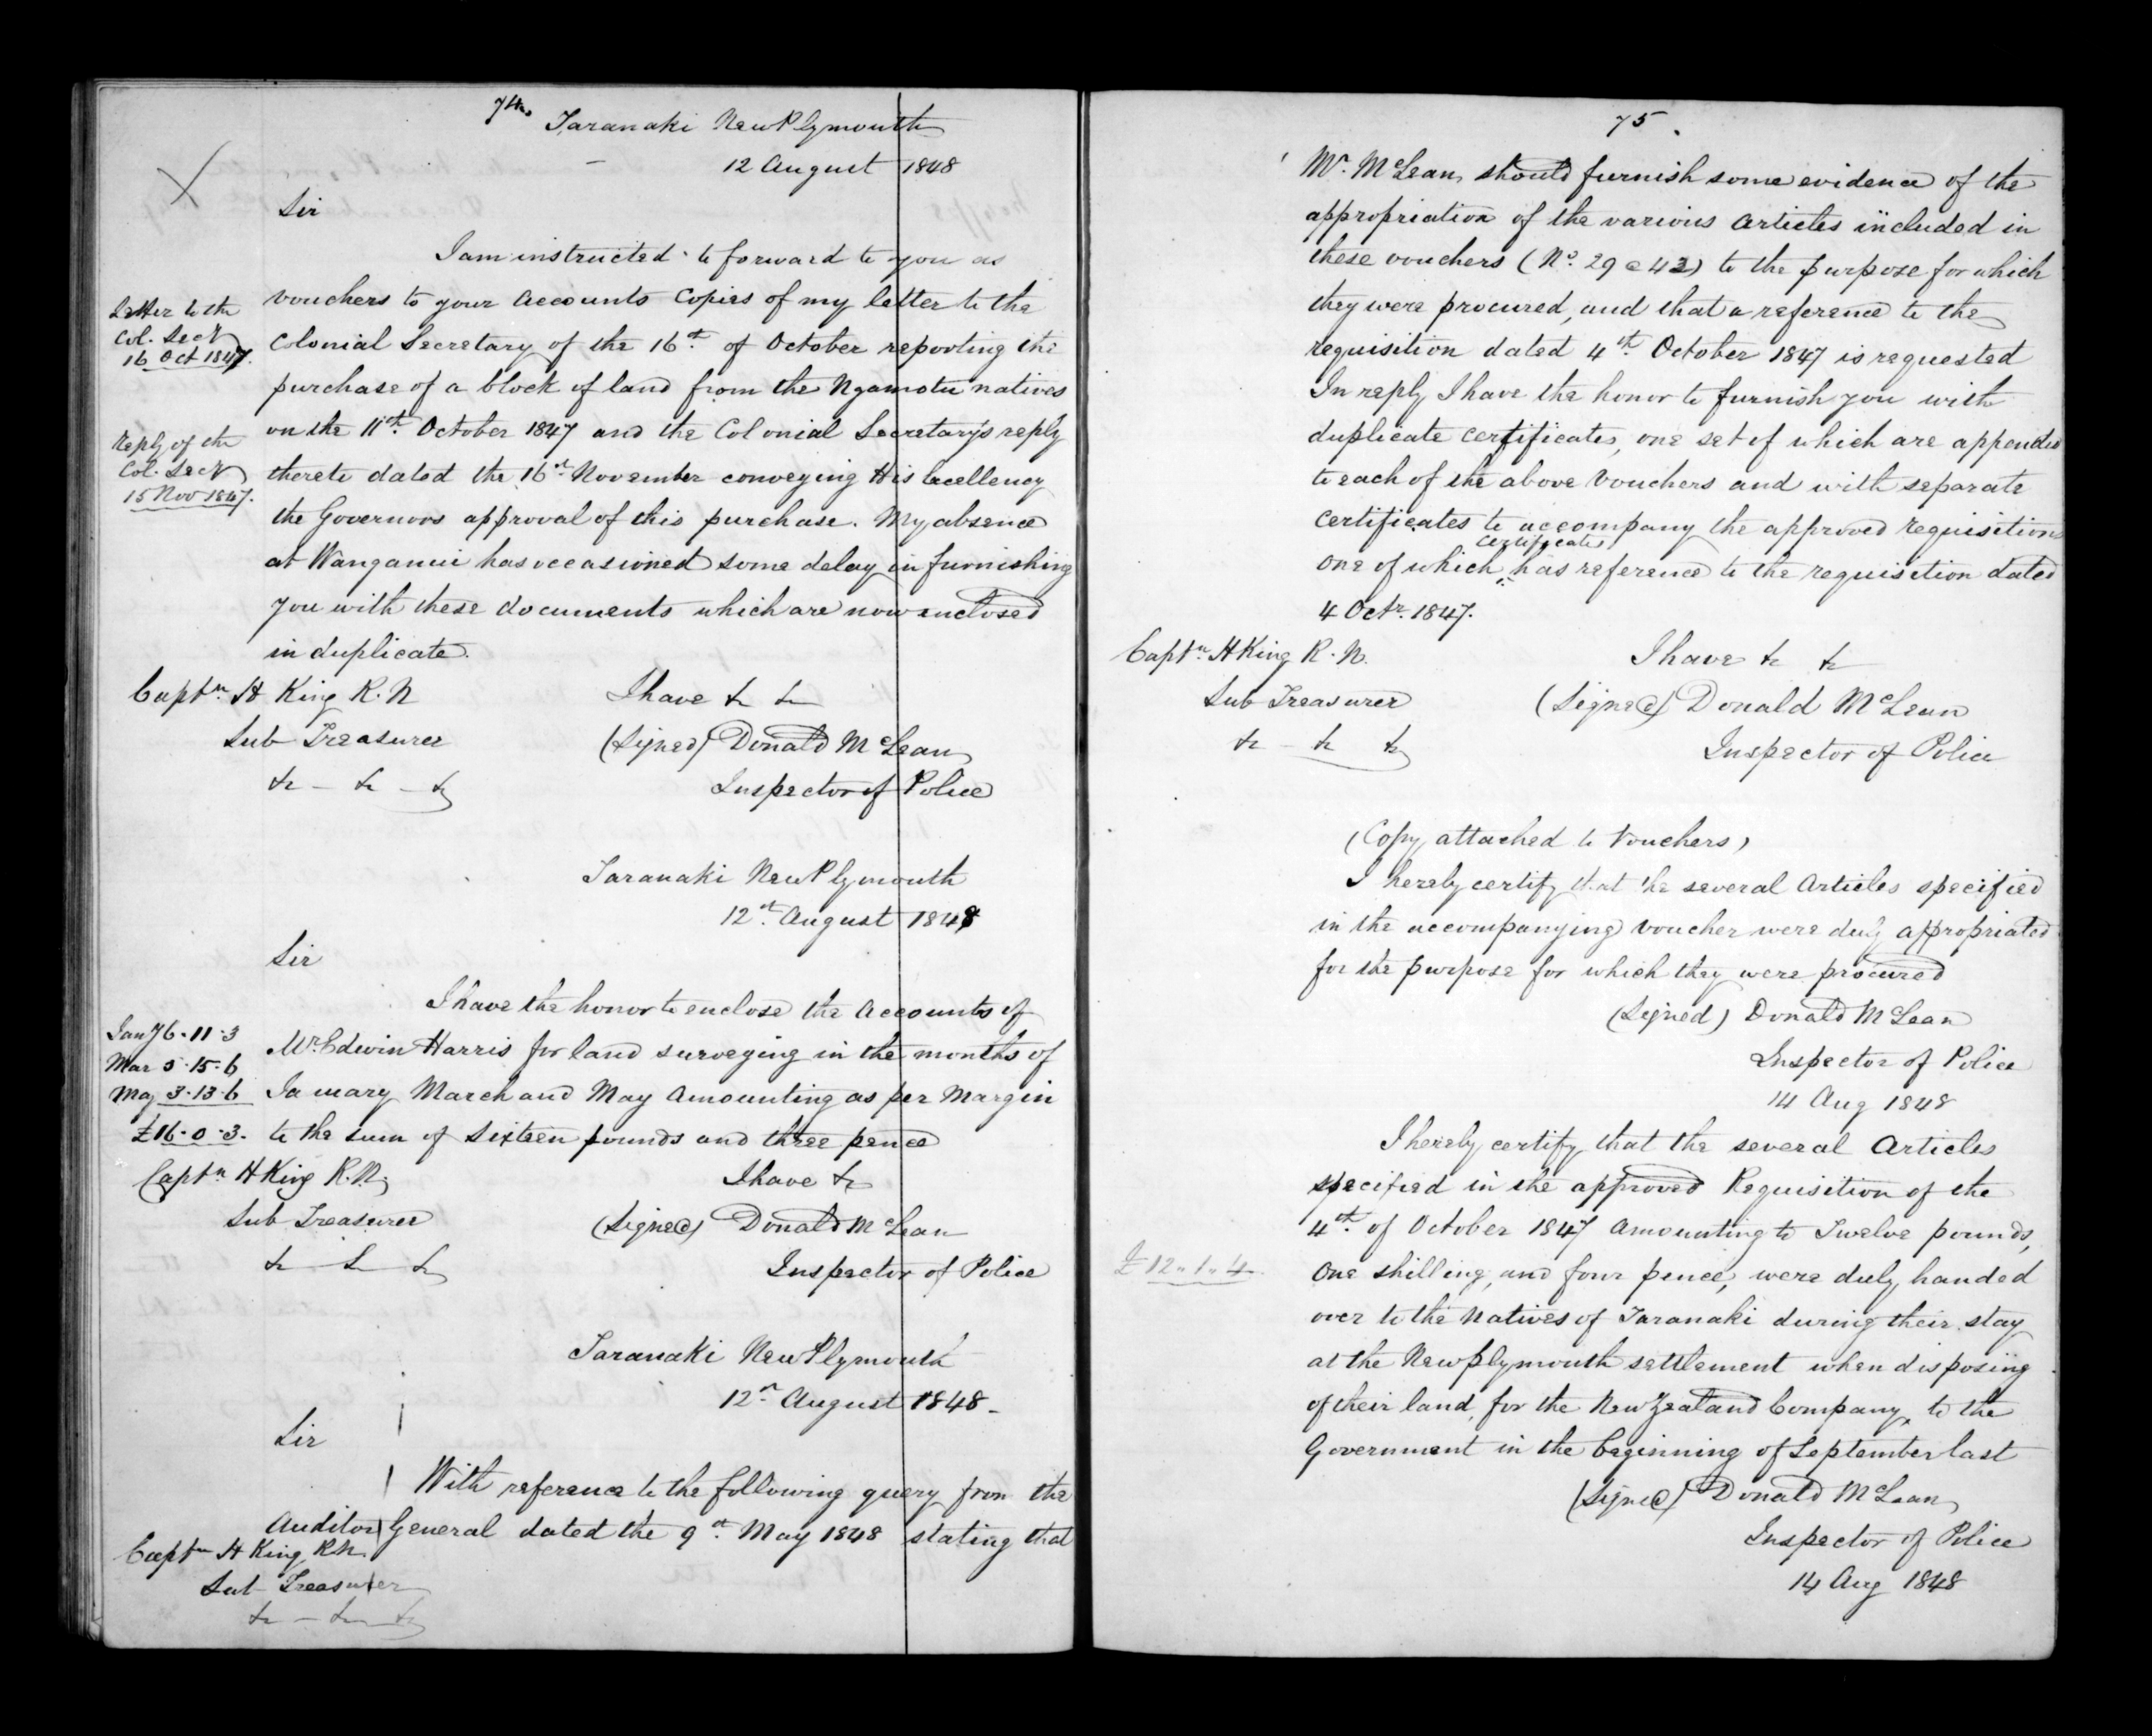 74.
Taranaki New Plymouth
12 August 1848
Sir
I am instructed to forward to you as
vouchers to your Accounts Copies of my letter to the
Letter to the
Col. Secy
16 Oct 1847.
Colonial Secretary of the 16th of October reporting the
purchase of a block of land from the Ngamotu natives
on the 11th October 1847 and the Colonial Secretary's reply
Reply of the
Col. Secy
15 Nov 1847.
thereto dated the 16th November conveying His Excellency
the Governors approval of this purchase. My absence
at Wanganui has occasioned some delay in furnishing
you with these documents which are now enclosed
in duplicate.
Captn H King R.N
I have &c &c
Sub Treasurer
(Signed) Donald McLean
&c - &c - &c
Inspector of Police
Taranaki New Plymouth
12th August 1848
Sir
I have the honor to enclose the Accounts of
Jany 6-11-3
Mar 5-15-6
May 3-13-6
£16-0-3.
Mr Edwin Harris for land surveying in the months of
January March and May Amounting as per Margin
to the sum of Sixteen pounds and three pence
Captn H King R.N.
I have &c
Sub Treasurer
(Signed) Donald McLean
&c &c &c
Inspector of Police
Taranaki New Plymouth
12th August 1848-
Sir
With reference to the following query from the
Auditor General dated the 9th May 1848 stating that
Captn H King RN
Sub Treasurer
&c - &c &c
75.
Mr. McLean should furnish some evidence of the
appropriation of the various Articles included in
these vouchers (No. 29 a 43) to the purpose for which
they were procured, and that a reference to the
requisition dated 4th October 1847 is requested
In reply I have the honor to furnish you with
duplicate certificates, one set of which are appended
to each of the above Vouchers and with separate
certificates to accompany the approved requisitions
certificates
one of which has reference to the requisition dated
4 Octr. 1847.
Captn. H King R.N.
I have &c &c
Sub Treasurer
(Signed) Donald McLean
&c - &c &c
Inspector of Police
(Copy attached to Vouchers)
I hereby certify that the several Articles specified
in the accompanying voucher were duly appropriated
for the purpose for which they were procured
(Signed) Donald McLean
Inspector of Police
14 Aug 1848
I hereby certify that the several Articles
specified in the approved Requisition of the
4th of October 1847 Amounting to Twelve pounds,
£12"1"4
One shilling, and four pence, were duly handed
over to the Natives of Taranaki during their stay
at the New Plymouth settlement when disposing
of their land, for the New Zealand Company, to the
Government in the beginning of September last
(Signed) Donald McLean
Inspector of Police
14 Aug 1848